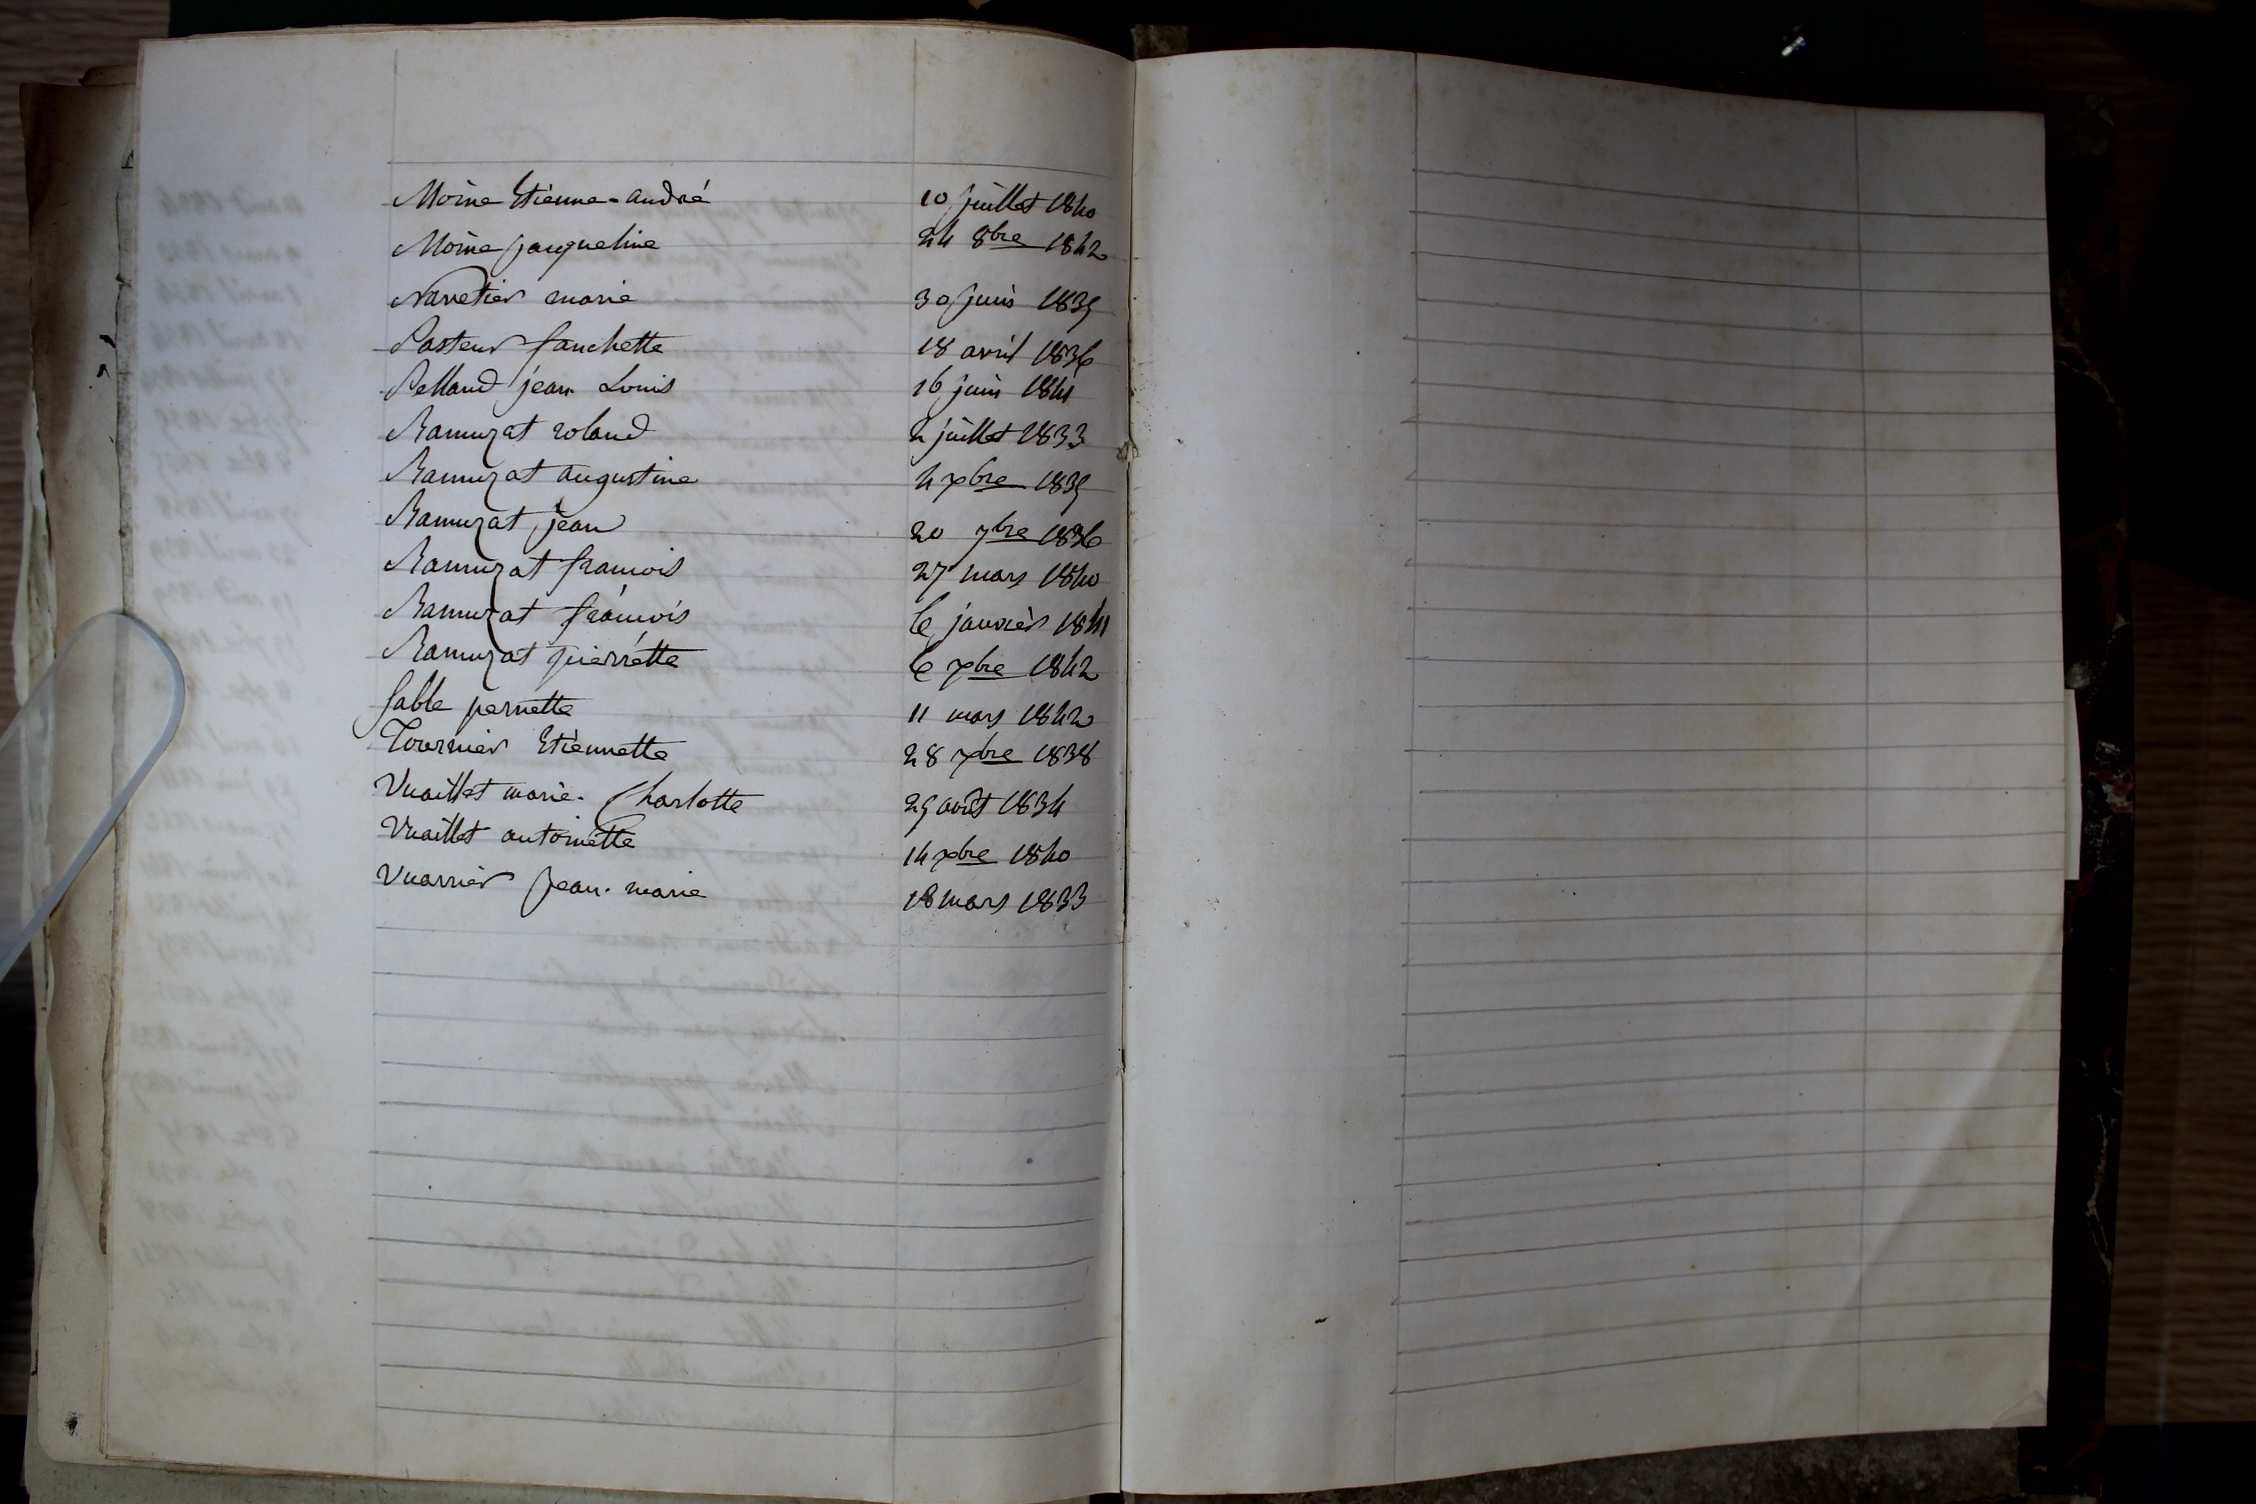 Moine Etienne-andré 10 juillet 1840
Moine jacqueline 24 8bre 1842
Navetier marie 30 juin 1835
Pasteur fanchette 18 avril 1836
Pelland jean Louis 16 juin 1841
Ramuzat roland 2 juillet 1833
Ramuzat augustine 4 xbre 1835
Ramuzat jean 20 7bre 1836
Ramuzat francois 27 mars 1840
Ramuzat francois 6 janvier 1841
Ramuzat pierrette 6 xbre 1842
Sable pernette 11 mars 1842
Tournier Etiennette 28 xbre 1838
Vuaillet marie-Charlotte 25 août 1834
Vuaillet antoinette 14 xbre 1840
Vuarrier Jean-marie 18 mars 1833